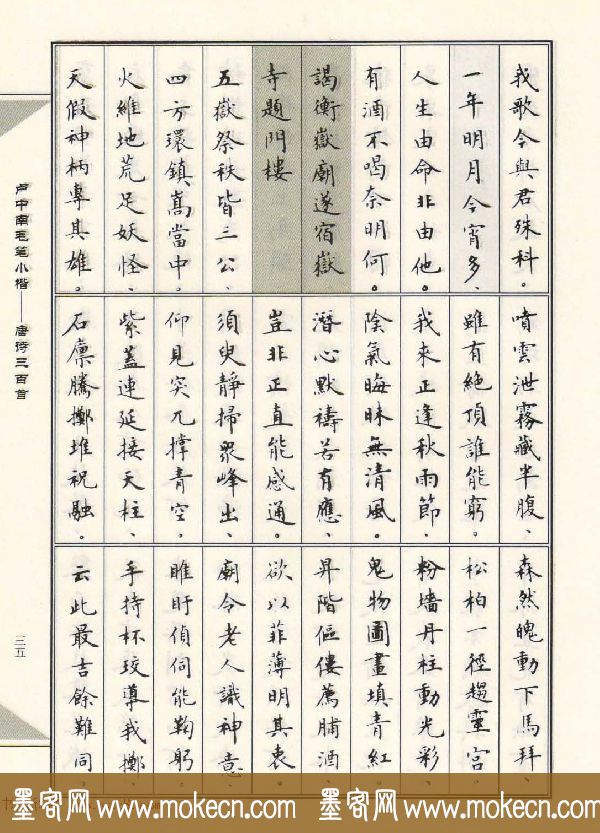 我歌今與君殊科。
一年明月今宵多、
人生由命非由他。
有酒不喝奈明何。
謁衡嶽廟遂宿嶽
寺題門樓
五嶽祭秩皆三公、
四方環鎮嵩當中。
火維地荒足妖怪、
天假神柄專其雄。
噴雲泄霧藏半腹、
雖有絕頂誰能窮。
我來正逢秋雨節、
陰氣晦昧無清風。
潛心默禱若有應、
豈非正直能感通。
須臾靜掃眾峰出、
仰見突兀撐青空。
紫蓋連延接天柱、
石廩騰擲堆祝融。
森然魄動下馬拜、
松柏一徑趨靈宮。
粉墻丹柱動光彩、
鬼物圖畫填青紅。
昇階傴僂薦脯酒、
欲以菲薄明其衷。
廟令老人識神意、
睢盱偵伺能鞠躬。
手持杯珓導我擲、
云此最吉餘難同。
卢中南毛笔小楷——唐诗三百首
三五
墨客网 www.mokecn.com 墨客网 www.mokecn.com